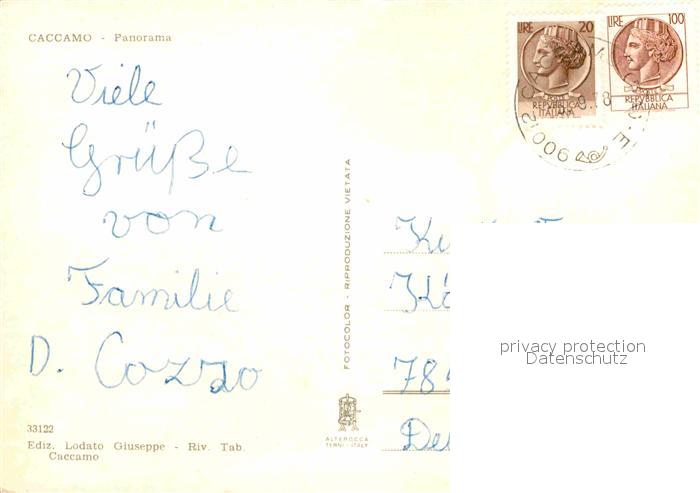 CACCAMO - Panorama
Viele
Grüße
von
Familie
D. Cozzo
33122
Ediz. Lodato Giuseppe - Riv. Tab.
Caccamo
FOTOCOLOR - RIPRODUZIONE VIETATA
ALTEROCCA
TERNI - ITALY
LIRE 20
REPVBBLICA
ITALIANA
LIRE 100
REPVBBLICA
ITALIANA
90012
78
privacy protection
Datenschutz